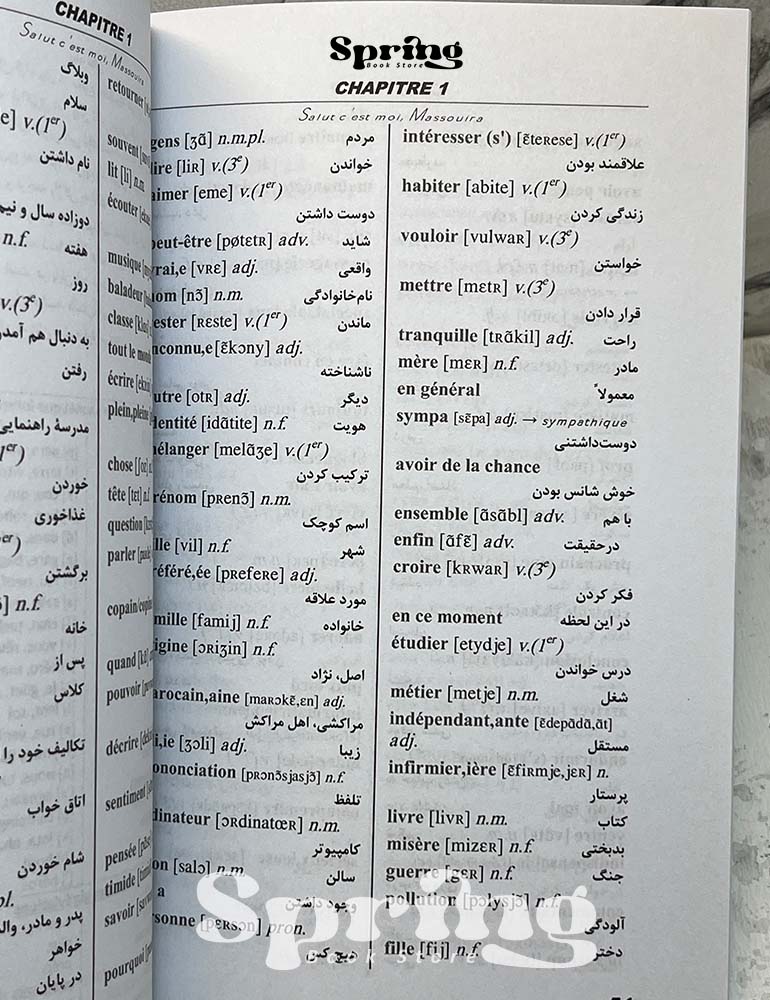 CHAPITRE 1
Salut c'est moi, Massouira
وبلاگ
سلام
e] v.(1er)
نام داشتن
دوازده سال و نیم
n.f. هفته
روز
v.(3e)
به دنبال هم آمدن
رفتن
مدرسهٔ راهنمایی
خوردن
غذاخوری
برگشتن
n.f.
خانه
پس از
کلاس
تکالیف خود را
اتاق خواب
شام خوردن
پدر و مادر، وال
خواهر
در پایان
retourner
souvent
lit [li] n.m.
écouter
musique
baladeur
classe
tout le monde
écrire
plein,pleine
chose
tête [tɛt] n.f.
question
parler
copain/copine
quand [kɑ̃]
pouvoir
décrire
sentiment
pensée
timide
savoir
pourquoi
Spring
Book Store
CHAPITRE 1
Salut c'est moi, Massouira
gens [ʒɑ̃] n.m.pl. مردم
lire [liʀ] v.(3e) خواندن
aimer [eme] v.(1er)
دوست داشتن
peut-être [pøtɛtʀ] adv. شاید
vrai,e [vʀɛ] adj. واقعی
nom [nɔ̃] n.m. نام‌خانوادگی
ester [ʀɛste] v.(1er) ماندن
nconnu,e [ɛ̃kɔny] adj.
ناشناخته
utre [otʀ] adj. دیگر
dentité [idɑ̃tite] n.f. هویت
mélanger [melɑ̃ʒe] v.(1er)
ترکیب کردن
rénom [pʀenɔ̃] n.m.
اسم کوچک
lle [vil] n.f. شهر
référé,ée [pʀefeʀe] adj.
مورد علاقه
mille [famij] n.f. خانواده
igine [ɔʀiʒin] n.f.
اصل، نژاد
arocain,aine [maʀɔkɛ̃,ɛn] adj.
مراکشی، اهل مراکش
li,ie [ʒɔli] adj. زیبا
ononciation [pʀɔnɔ̃sjasjɔ̃] n.f.
تلفظ
dinateur [ɔʀdinatœʀ] n.m.
کامپیوتر
on [salɔ̃] n.m. سالن
a وجود داشتن
rsonne [pɛʀsɔn] pron.
هیچ کس
intéresser (s') [ɛ̃teʀese] v.(1er)
علاقمند بودن
habiter [abite] v.(1er)
زندگی کردن
vouloir [vulwaʀ] v.(3e)
خواستن
mettre [mɛtʀ] v.(3e)
قرار دادن
tranquille [tʀɑ̃kil] adj. راحت
mère [mɛʀ] n.f. مادر
en général معمولاً
sympa [sɛ̃pa] adj. → sympathique
دوست‌داشتنی
avoir de la chance
خوش شانس بودن
ensemble [ɑ̃sɑ̃bl] adv. با هم
enfin [ɑ̃fɛ̃] adv. درحقیقت
croire [kʀwaʀ] v.(3e)
فکر کردن
en ce moment در این لحظه
étudier [etydje] v.(1er)
درس خواندن
métier [metje] n.m. شغل
indépendant,ante [ɛ̃depɑ̃dɑ̃,ɑ̃t]
adj. مستقل
infirmier,ière [ɛ̃fiʀmje,jɛʀ] n.
پرستار
livre [livʀ] n.m. کتاب
misère [mizɛʀ] n.f. بدبختی
guerre [gɛʀ] n.f. جنگ
pollution [pɔlysjɔ̃] n.f.
آلودگی
fille [fij] n.f. دختر
Spring
Book Store